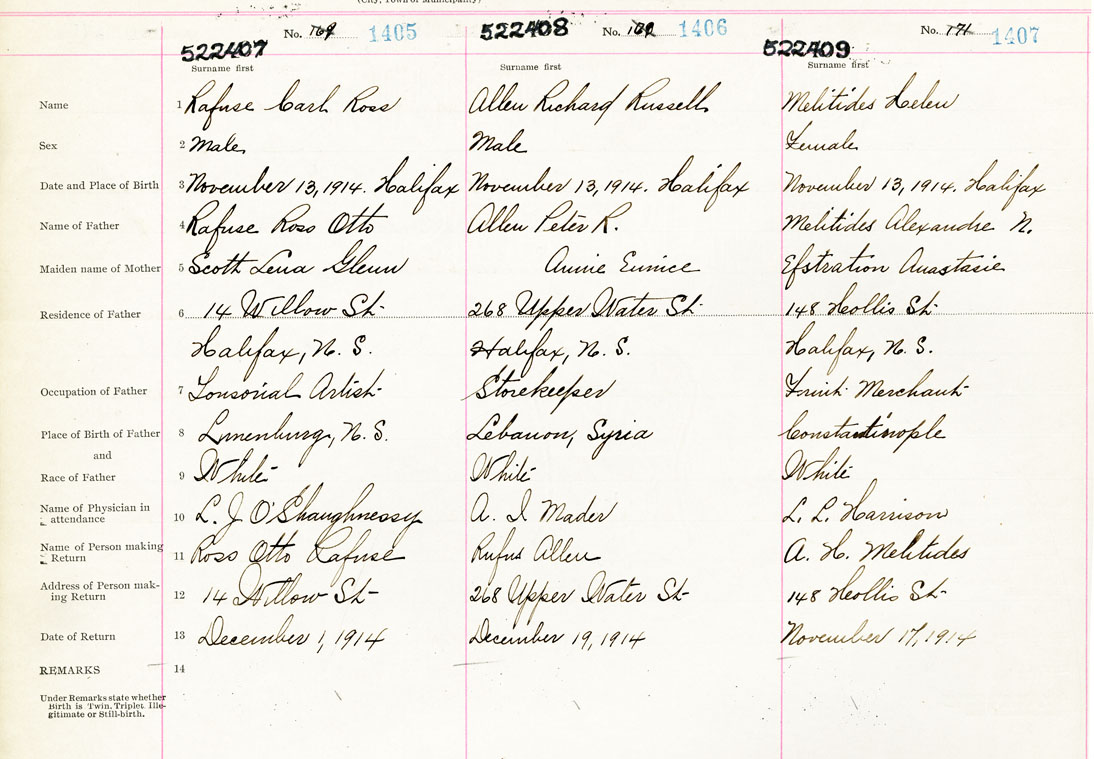 (City, Town or Municipality)
No. 169 1405 No. 170 1406 No. 171 1407
522407 522408 522409
Surname first Surname first Surname first
Name 1 Rafuse Carl Ross Allen Richard Russell Melitides Helen
Sex 2 Male Male Female
Date and Place of Birth 3 November 13, 1914. Halifax November 13, 1914. Halifax November 13, 1914. Halifax
Name of Father 4 Rafuse Ross Otto Allen Peter R. Melitides Alexandre N.
Maiden name of Mother 5 Scott Lena Glenn Annie Eunice Efstration Anastasie
Residence of Father 6 14 Willow St 268 Upper Water St 148 Hollis St
Halifax, N. S. Halifax, N. S. Halifax, N. S.
Occupation of Father 7 Tonsorial Artist Storekeeper Fruit Merchant
Place of Birth of Father 8 Lunenburg, N. S. Lebanon, Syria Constantinople
and
Race of Father 9 White White White
Name of Physician in
attendance 10 L. J O'Shaughnessy A. I Mader L. L. Harrison
Name of Person making
Return 11 Ross Otto Rafuse Rufus Allen A. H. Melitides
Address of Person mak-
ing Return 12 14 Willow St 268 Upper Water St 148 Hollis St
Date of Return 13 December 1, 1914 December 19, 1914 November 17, 1914
REMARKS 14
Under Remarks state whether
Birth is Twin, Triplet, Ille-
gitimate or Still-birth.